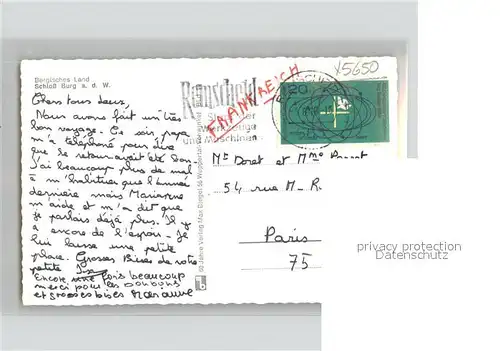 x5650
Bergisches Land
Schloß Burg a. d. W.
Chers tous deux,
Nous avons fait un très
bon voyage. Ce soir papa
m'a téléphoné pour dire
que le retour avait été bon.
J'ai beaucoup plus de mal
à m'habituer que l'année
dernière mais Marianne
m'aide et m'a dit que
je parlais déjà plus. Il y
a encore de l'espoir. Je
lui laisse une petite
place. Grosses Bises de votre
petite
Encore une fois beaucoup
merci pour les bonbons
et grosses bises Marianne
60 Jahre Verlag Max Biegel 56 Wuppertal
Remscheid
FRANKREICH
Werkzeuge
und Maschinen
20
Mr Doret et Mme
54 rue M. R.
Paris
75
privacy protection
Datenschutz